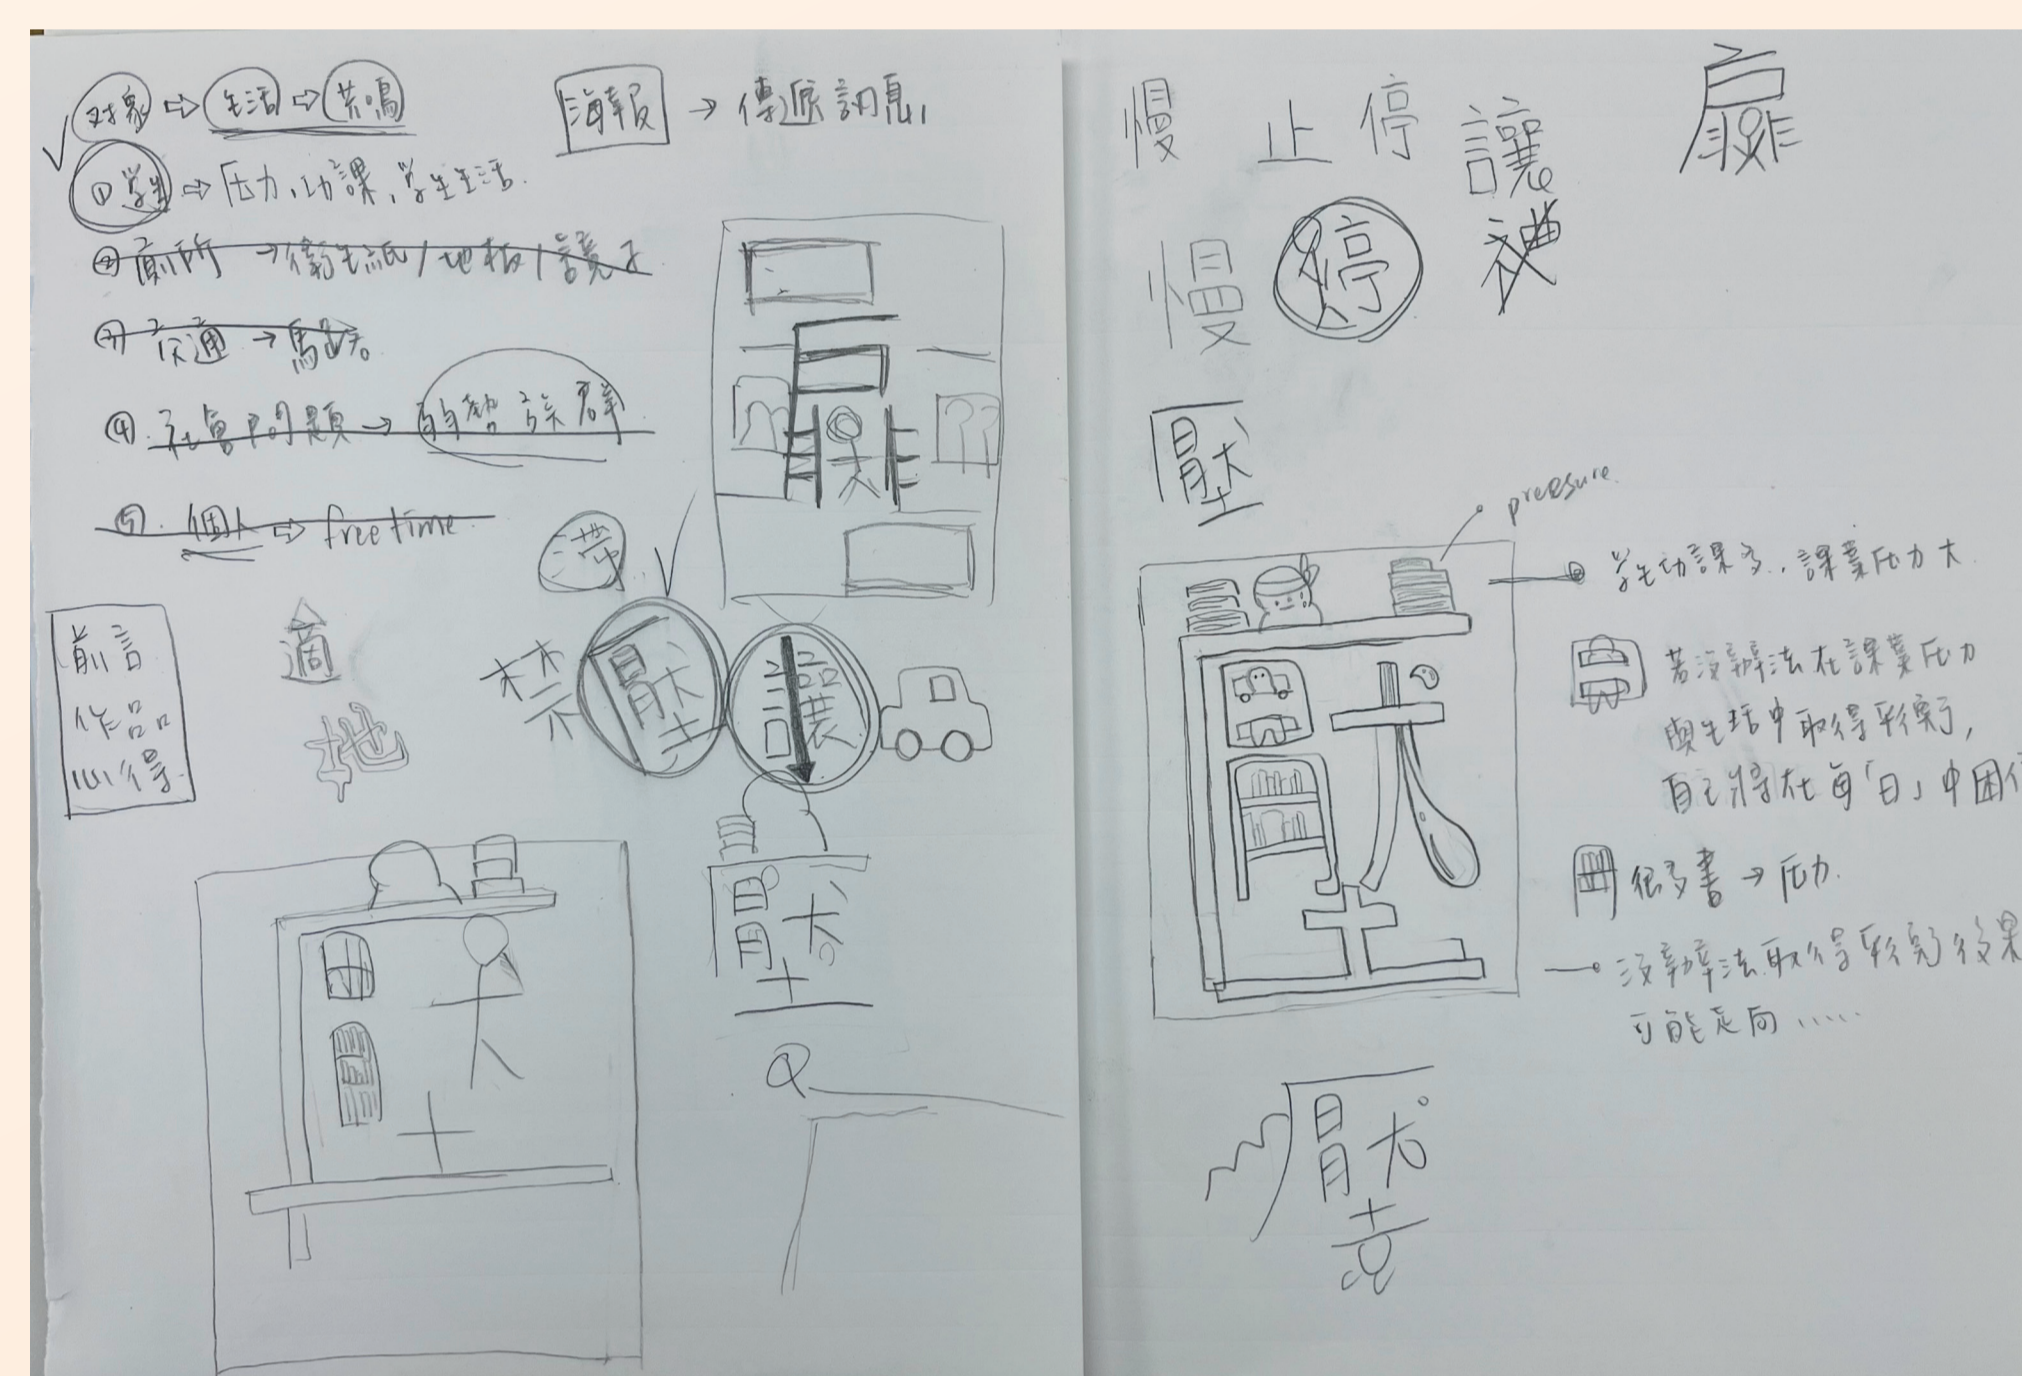 对象 ⇨ 生活 ⇨ 共鳴
海報 → 傳遞訊息
① 學生 ⇨ 压力、功課，学生生活.
② 廁所 → 衛生紙/地板/鏡子
③ 交通 → 馬路。
④ 社會問題 → 弱勢族群
⑤. 個人 ⇨ free time
滯
前言
作品
心得
適
地
禁
壓
讓
壓
慢 止 停 讓
慢 停
壓
pressure.
學生功課多，課業压力大.
若沒辦法在課業压力
與生活中取得平衡，
自己將在每「日」中困
很多書 → 压力.
沒辦法取得平衡後果
可能走向.....
壓